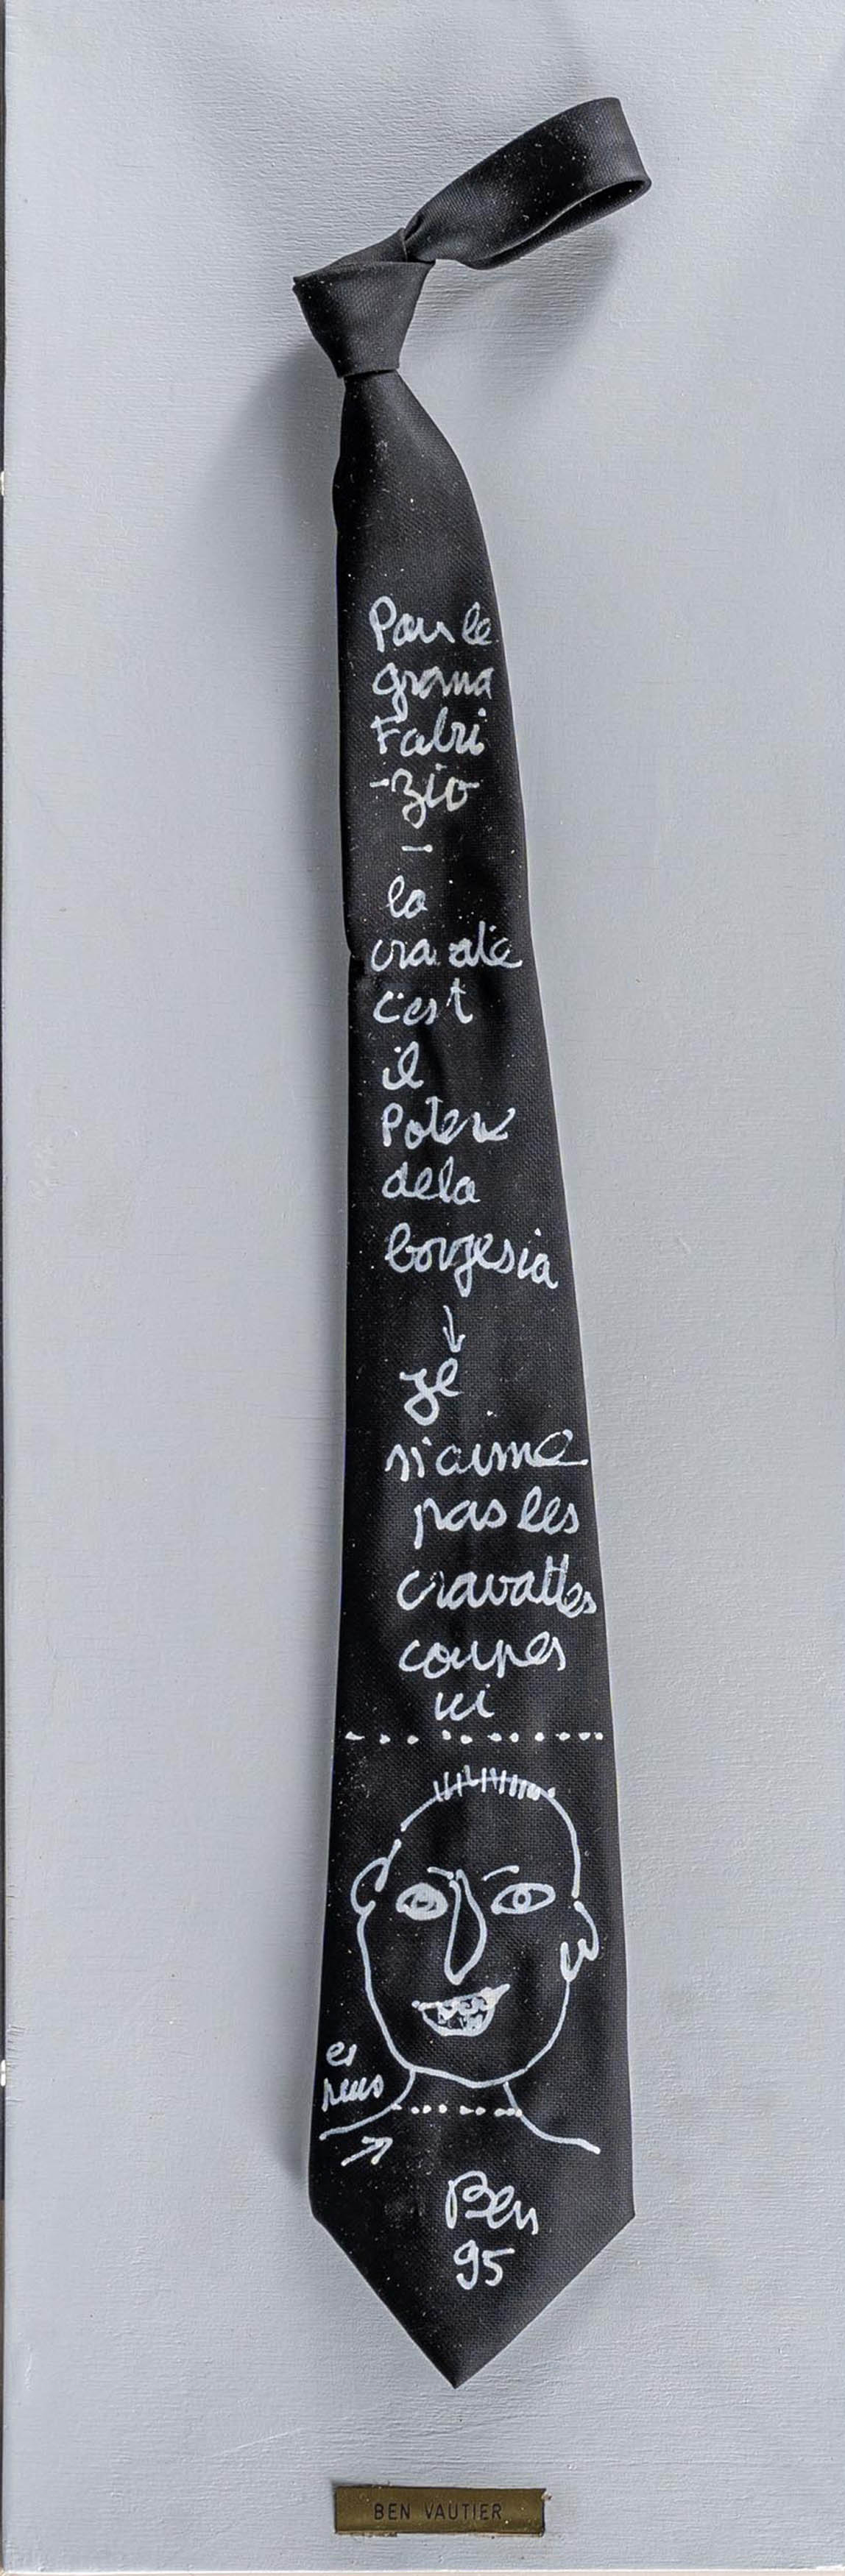 Pour le
grand
Fabri
-zio
la
cravate
c'est
il
Potere
dela
borgesia
je
n'aime
pas les
cravattes
coupes
ici
Ben
95
BEN VAUTIER